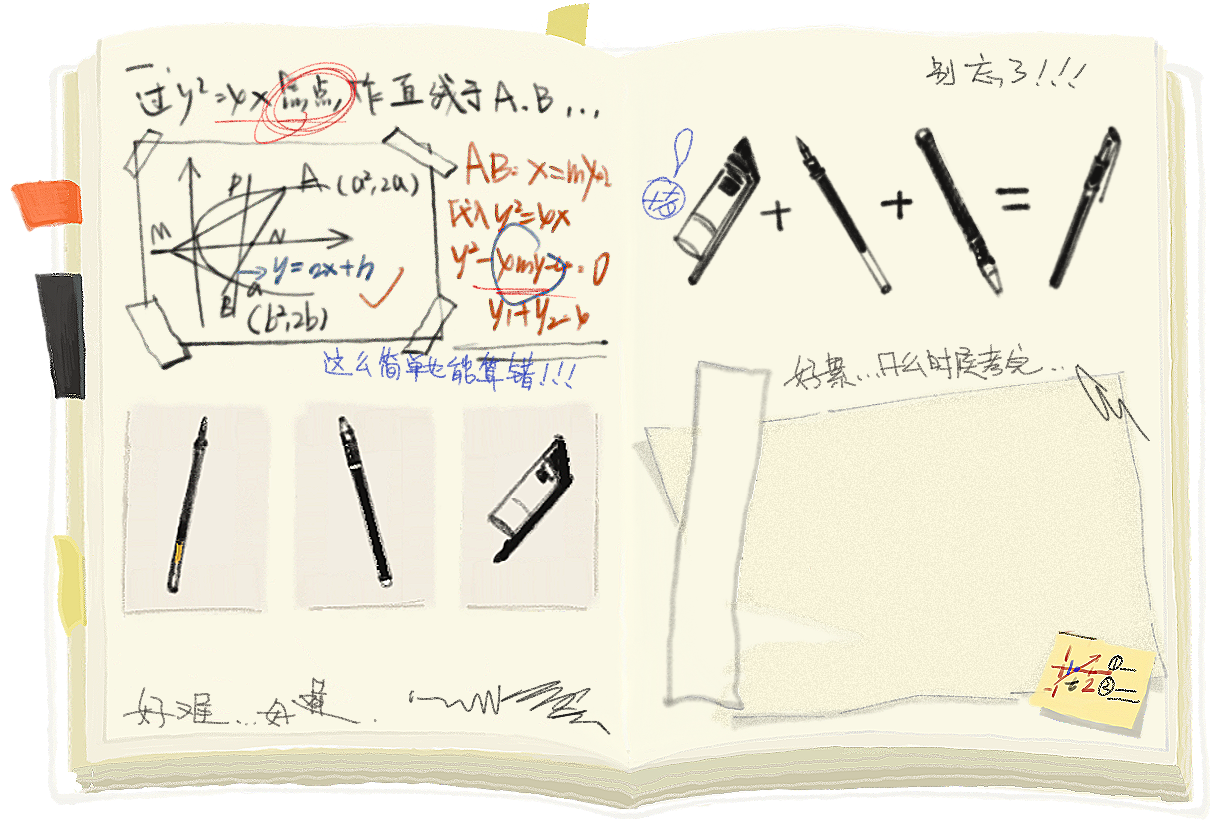 过y²=4x焦点,作直线于A.B...
A(a²,2a)
P
M
N
y=2x+b
B
a
(b²,2b)
AB: x=my+2
代入y²=4x
y²-4my-4=0
y₁+y₂=4
这么简单也能算错!!!
好难...好
别忘了!!!
+ + =
好累...什么时候考完...
1 2 ①
-1 ÷ 2 ②